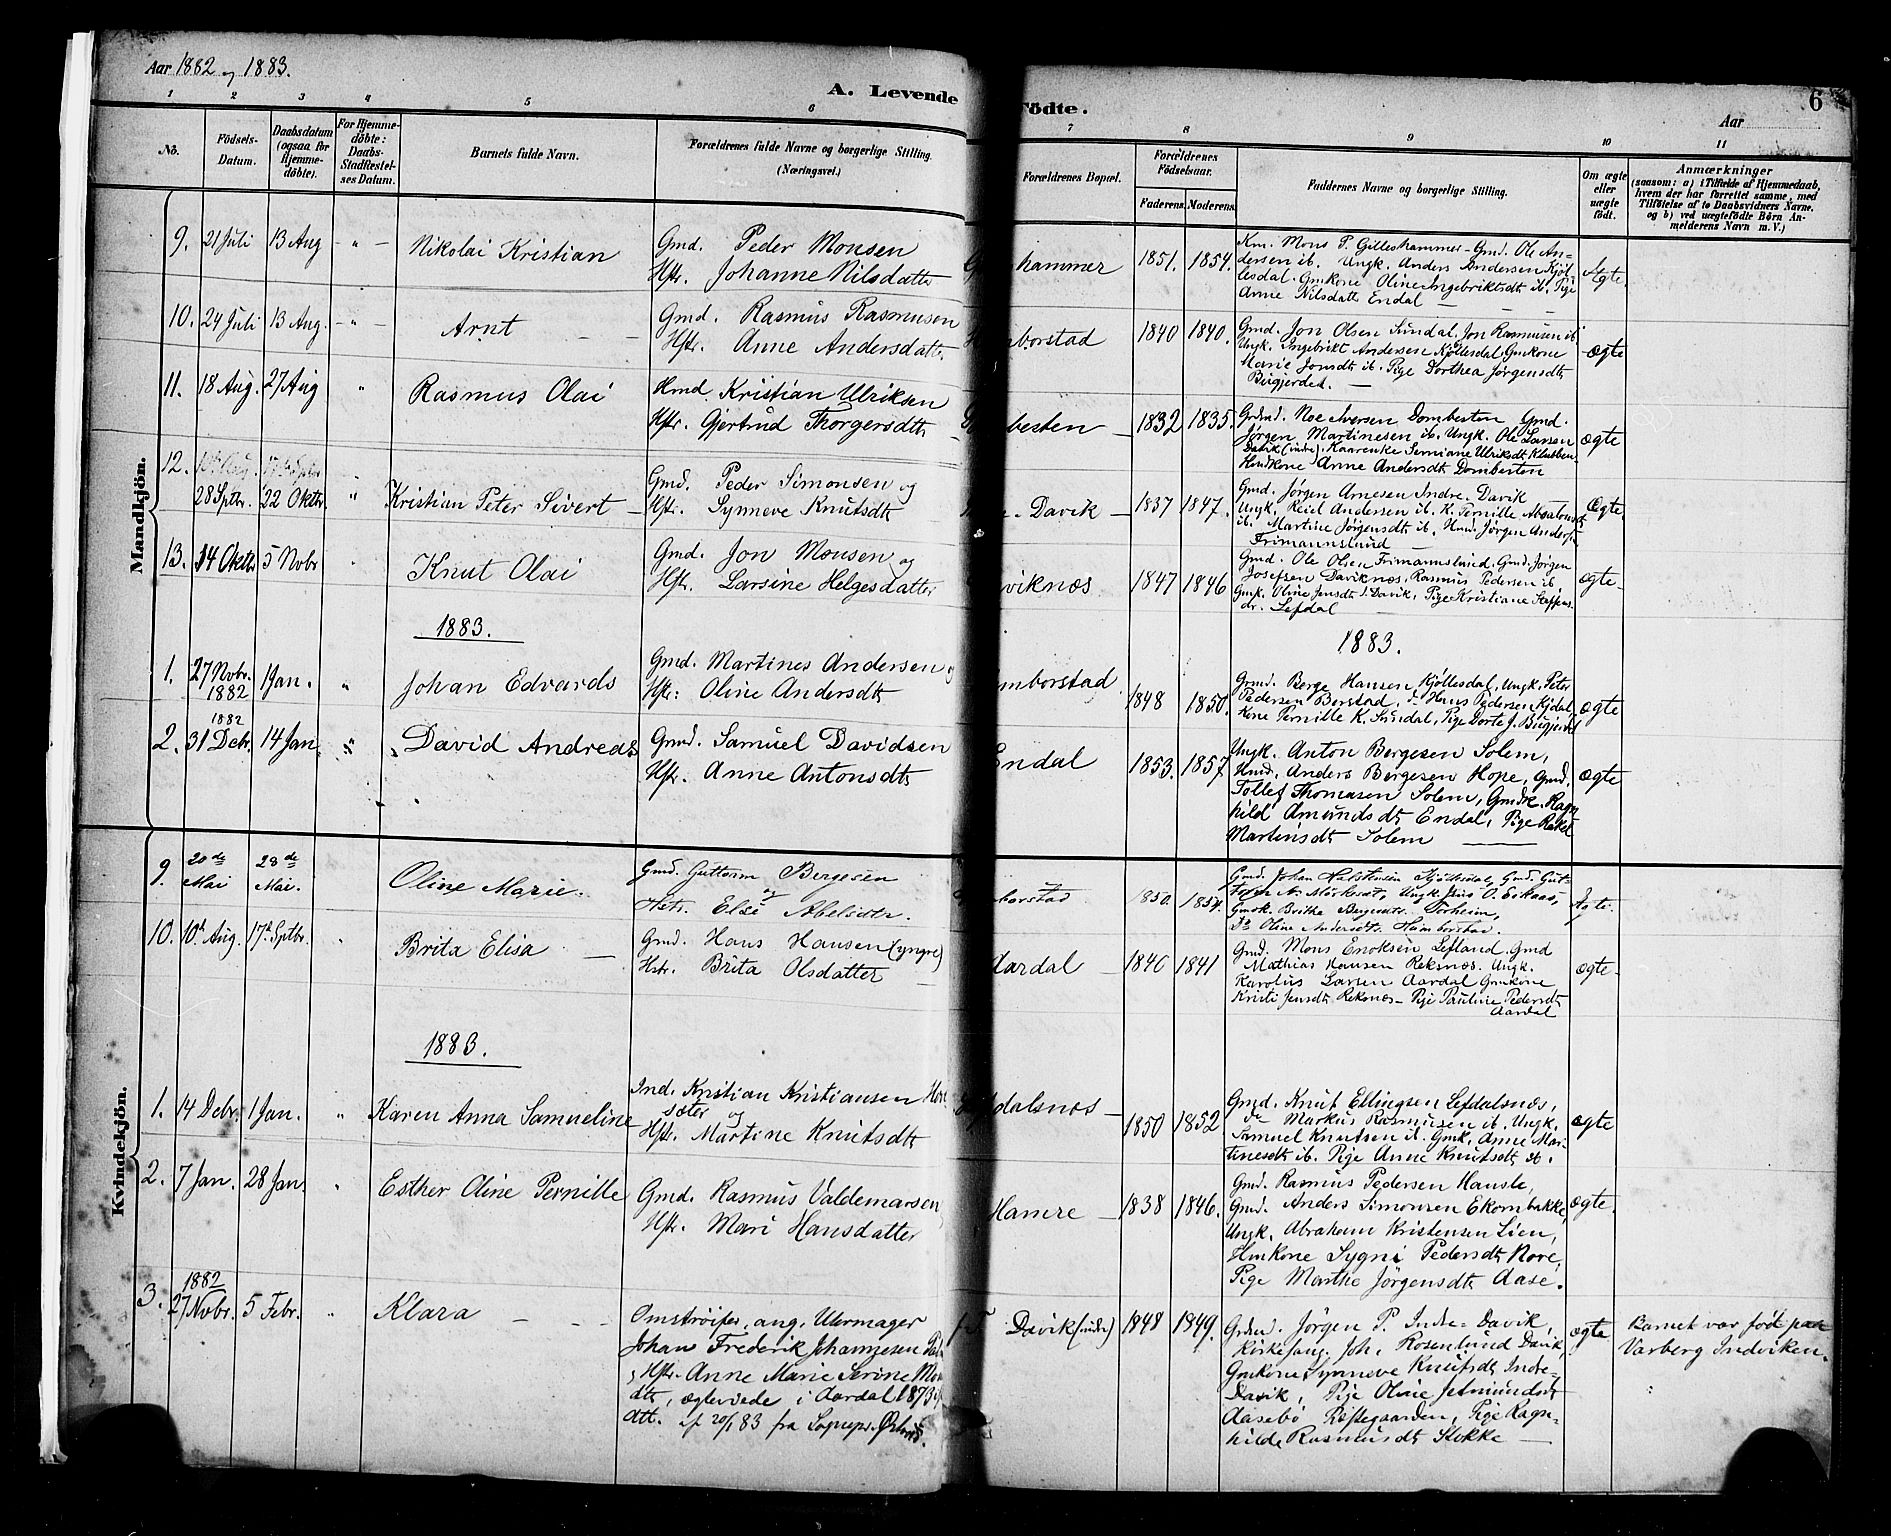 Aar 1882 og 1883.
A. Levende Födte.
6
Aar
1 2 3 4 5 6 7 8 9 10 11
No.
Födsels-
Datum.
Daabsdatum
(ogsaa for
Hjemme-
döbte).
For Hjemme-
döbte:
Daabs-
Stadfæstel-
ses Datum.
Barnets fulde Navn.
Forældrenes fulde Navne og borgerlige Stilling.
(Næringsvei.)
Forældrenes Bopæl.
Forældrenes
Födselsaar.
Faderens. Moderens.
Faddernes Navne og borgerlige Stilling.
Om ægte
eller
uægte
födt.
Anmærkninger
(saasom: a) i Tilfælde af Hjemmedaab,
hvem der har forrettet samme, med
Tilföielse af to Daabsvidners Navne,
og b) ved uægtefödte Börn An-
melderens Navn m. V.)
Mandkjön.
9. 21 Juli 13 Aug - " - Nikolai Kristian
Gmd. Peder Monsen
Hstr. Johanne Nilsdatter
hammer 1851. 1854.
Km. Mons P. Gilleshammer - Gmd. Ole An-
dersen ib. Ungk. Anders Andersen Kjöl-
lesdal. Gmkone Oline Ingebriktsdt ib. Pige
Anne Nilsdatt Endal —
Ægte.
10. 24 Juli 13 Aug. - " - Arnt
Gmd. Rasmus Rasmusen
Hstr. Anne Andersdatter
mborstad 1840 1840.
Gmd. Jon Olsen Sundal, Jon Rasmusen ib
Ungk. Ingebrikt Andersen Kjöllesdal, Gmkone
Marie Jonsdt ib. Pige Dorthea Jörgensdt
Bugjerdet. —
ægte
11. 18 Aug. 27 Aug " Rasmus Olai
Hmd. Kristian Ulriksen
Hstr. Gjertrud Thorgersdtt
besten — 1832 1835.
Grdmd. Noe Iversen Dombesten Gmd.
Jörgen Martinesen ib. Ungk. Ole Larsen
Davik (indre), Kaarenke Semiane Ulriksdt Klubben
Hmdkone Anne Andersdt Dombesten
ægte
12.
28 Septbr. 22 Oktbr " Kristian Peter Sivert —
Gmd. Peder Simonsen og
Hstr. Synneve Knutsdt
- Davik — 1837 1847.
Gmd. Jörgen Arnesen Indre-Davik
Ungk. Reiel Andersen ib. K. Pernille Absalonsdt
ib. Martine Jörgensdt ib. Hmd. Jörgen Andersen
Frimannslund —
Ægte.
13. 14 Oktbr 5 Novbr " Knut Olai
Gmd. Jon Monsen og
Hstr. Larsine Helgesdatter
viknæs 1847 1846
Gmd. Ole Olsen Frimannslund, Gmd. Jörgen
Josefsen Daviknæs, Rasmus Pedersen ib.
Gmk. Oline Jensdt I. Davik, Pige Kristiane Steffens-
dr. Lefdal
ægte
1883. 1883.
1. 27 Novbr.
1882 1 Jan. " Johan Edvards
Gmd. Martines Andersen og
Hstr: Oline Andersdt
mborstad. 1848 1850.
Grmd. Berge Hansen Kjöllesdal, Ungk. Peter
Pedersen Borstad, do Hans Pedersen Kjödal,
Kone Pernille K. Sundal, Pige Dorte J. Bugjerdet
ægte
2. 1882
31 Debr. 14 Jan. " David Andreas
Gmd. Samuel Davidsen
Hstr. Anne Antonsdt
Endal 1853. 1857.
Ungk. Anton Bergesen Solem,
Hmd. Anders Bergesen Hope, Gmd.
Tollef Thomasen Solem, Gmdk. Ragn-
hild Amundsdt Endal, Pige Rakel
Martinsdt Solem —
ægte
Kvindekjön.
9. 20de
Mai 28de
Mai. Oline Marie.
Gmd. Guttorm Bergesen
og
Hstr. Else Abelsdtr.
borstad 1850. 1854.
Gmd. Johan Halstensen Kjöllesdal, Gmd. Gut-
torm A. Mörkesæt, Ungk. Jens O. Eikaas,
Gmdk. Britha Bergesdtr. Torheim,
Do Oline Andersdtr. Hamborstad.
Ægte.
10. 10de Aug. 17de Septbr. " Brita Elisa —
Gmd. Hans Hansen (yngre)
Hstr. Brita Olsdatter
Aardal — 1840 1841
Gmd. Mons Enoksen Lefland. Gmd
Mathias Hansen Reksnæs. Ungk.
Karolus Larsen Aardal Gmkone
Kristi Jensdt Reksnæs - Pige Pauline Pedersdt
Aardal
ægte.
1883.
1. 14 Debr. 1 Jan. " Karen Anna Samueline
Ind. Kristian Kristiansen Hore
sæter og
Hstr. Martine Knutsdt
dalsnæs — 1850 1852
Gmd. Knut Ellingsen Lefdalsnæs,
do Markus Rasmusen ib. Ungk.
Samuel Knutsen ib. Gmk. Anne Mar-
tinesdt ib. Pige Anne Knutsdt ib.
ægte
2. 7 Jan. 28 Jan. " Esther Oline Pernille
Gmd. Rasmus Valdemarsen
Hstr. Mari Hansdatter
Hamre — 1838 1846.
Gmd. Rasmus Pedersen Hausle,
Gmd. Anders Simonsen Ekornbakke,
Ungk. Abraham Kristensen Lien,
Hmkone Sygni Pedersdt Nore,
Pige Marthe Jörgensdt Aase.
ægte.
3. 1882
27 Novbr. 5 Febr. " Klara — -
Omstreifer, ang. Uhrmager
Johan Frederik Johannesen
Hstr. Anne Marie Serine
dtt, ægteviede i Aardal 1873
dtt. 20/1 83 fra Sognepr.
Davik (indre) 1848 1849.
Grdmd. Jörgen P. Indre-Davik,
Kirkesang. Joh. Rosenlund Davik,
Gmkone Synneve Knutsdt Indre-
Davik, Pige Oline Jetmundsdt
Aasebö Prestegaarden, Pige Ragn-
hilde Rasmusdt Stokke —
ægte
Barnet var född paa
Varberg Indviken.